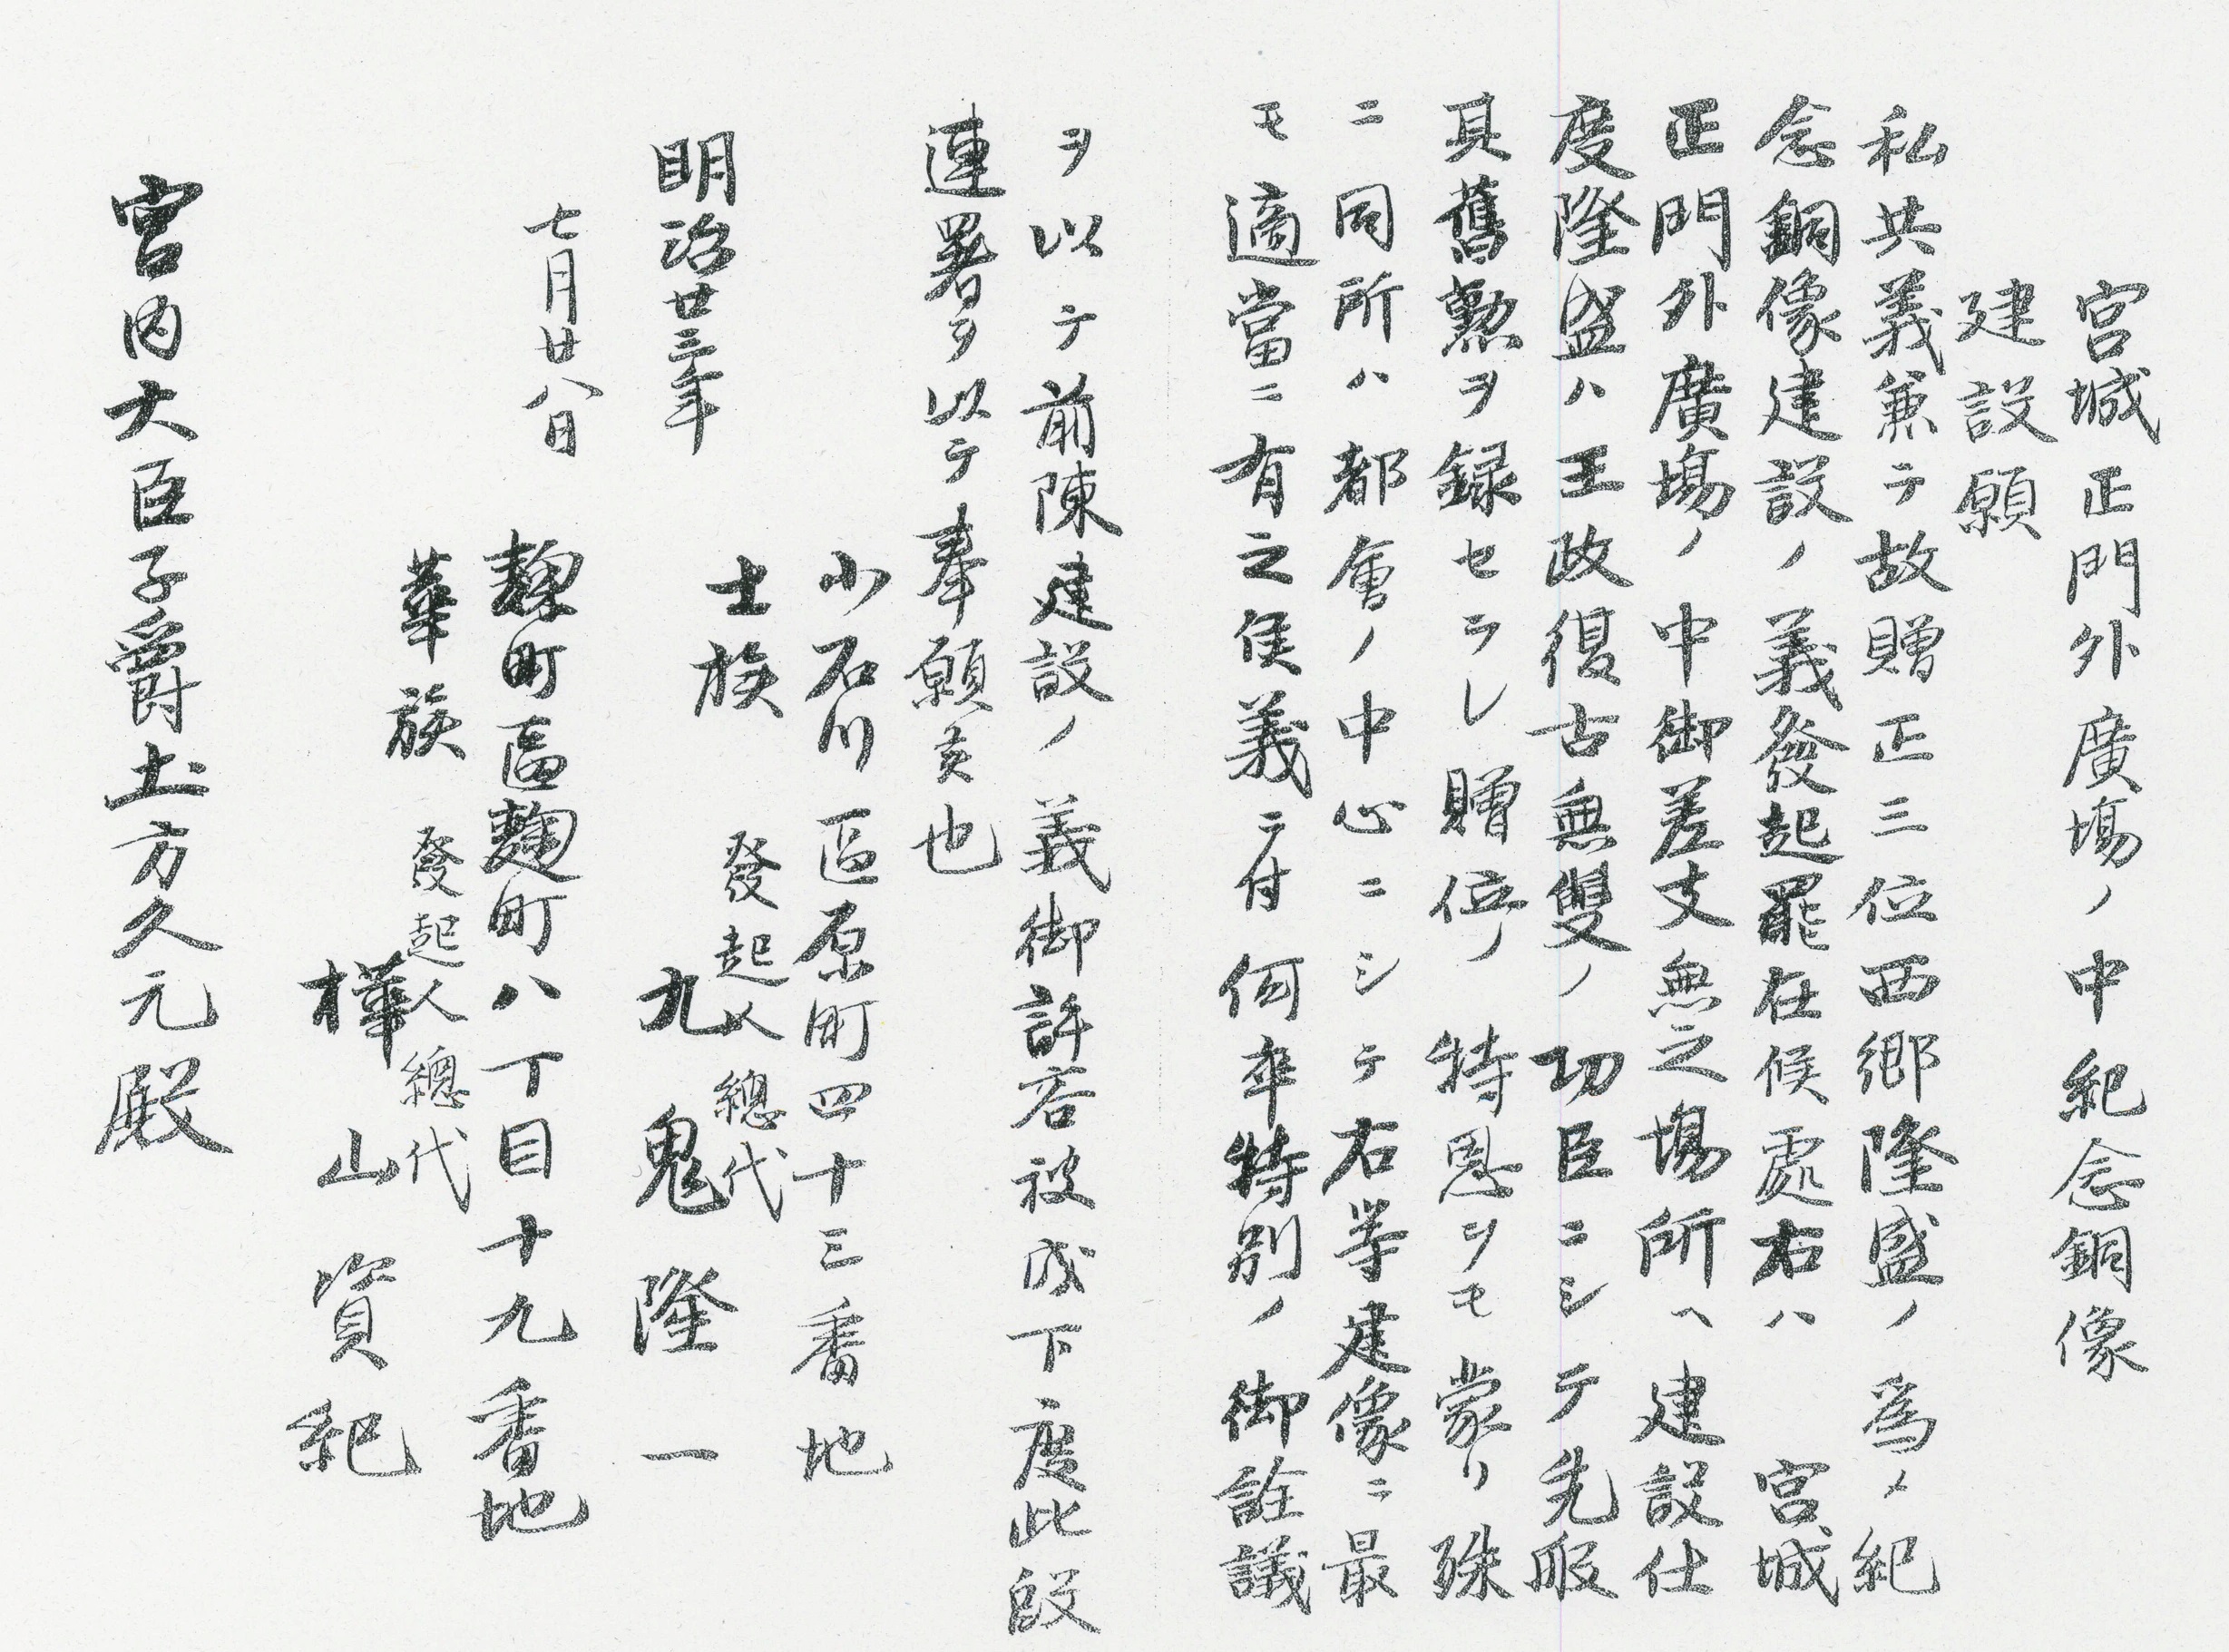 宮城正門外廣場ノ中紀念銅像
建設願
私共義兼テ故贈正三位西郷隆盛ノ為メ紀
念銅像建設ノ義發起罷在候處右ハ宮城
正門外廣場ノ中御差支無之場所ヘ建設仕
度隆盛ハ王政復古無雙ノ功臣ニシテ先般
其舊勲ヲ録セラレ贈位ノ特恩ヲモ蒙リ殊
ニ同所ハ都會ノ中心ニシテ右等建像ニ最
モ適當ニ有之候義ニ付何卒特別ノ御詮議
ヲ以テ前陳建設ノ義御許容被成下度此段
連署ヲ以テ奉願候也
小石川區原町四十三番地
士族 發起人總代
九鬼隆一
明治廿三年
七月廿八日
麹町區麹町八丁目十九番地
華族 發起人總代
樺山資紀
宮内大臣子爵土方久元殿